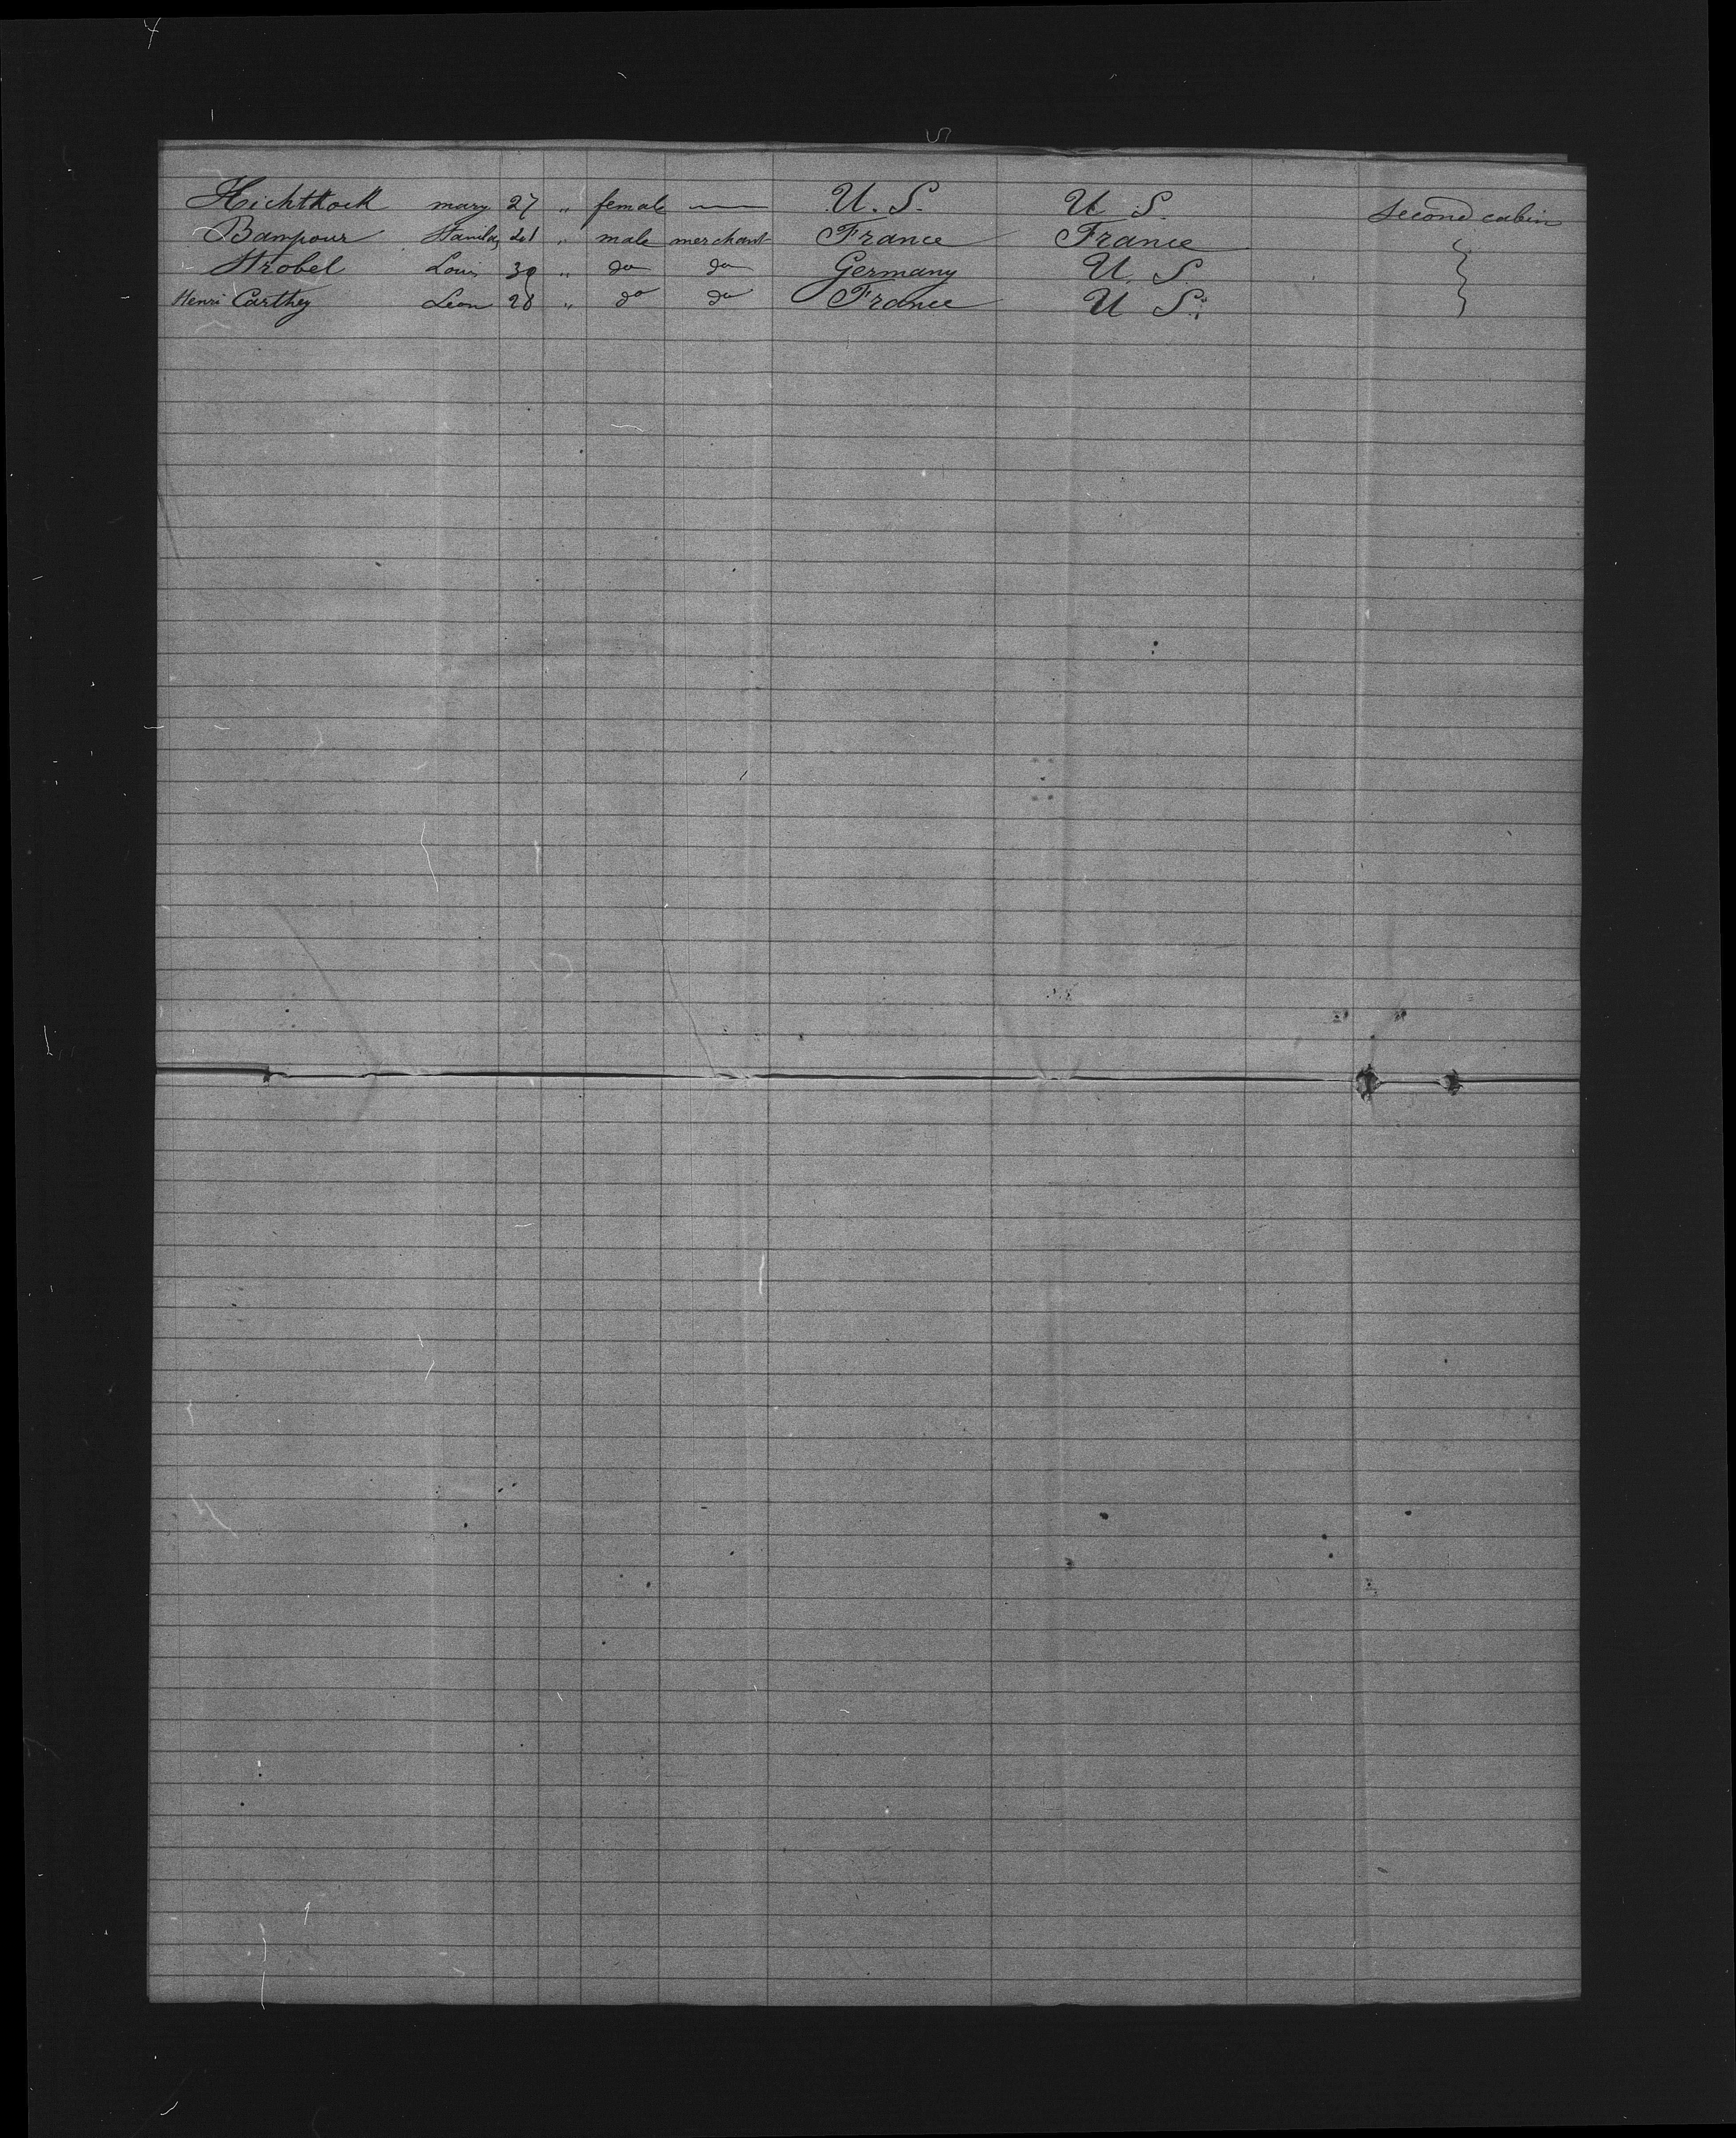 Hichtkock mary 27 " female — U. S. U. S. Second cabin
Bampour Stanilas 21 " male merchant France France
Strobel Louis 39 " do do Germany U. S.
Henri Carthey Leon 28 " do do France U. S.